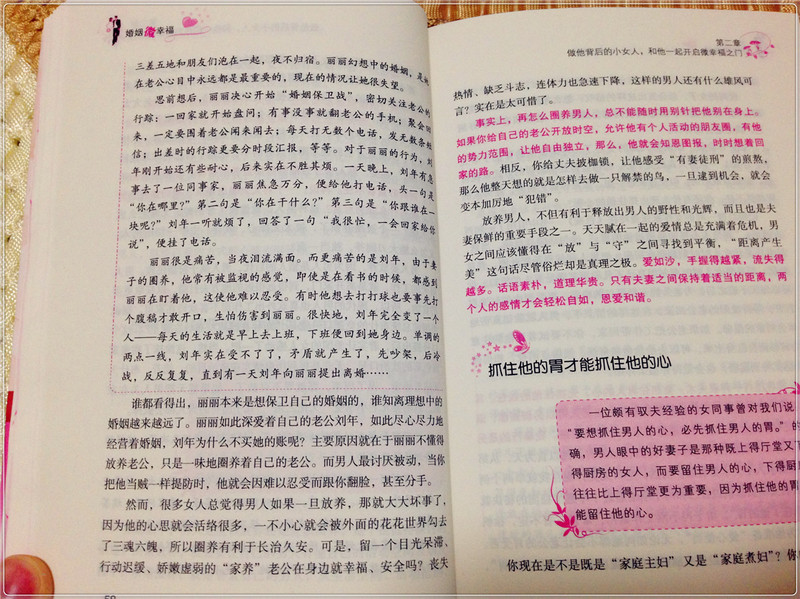 婚姻微幸福
三差五地和朋友们泡在一起，夜不归宿。丽丽幻想中的婚姻，是她
在老公心目中永远都是最重要的，现在的情况让她很失望。
思前想后，丽丽决心开始“婚姻保卫战”，密切关注老公的
行踪：一回家就开始盘问；有事没事就翻老公的手机；聚会回
来，一定要围着老公闻来闻去；每天打无数个电话，发无数条短
信；出差时的行踪更要分时段汇报，等等。对于丽丽的行为，刘
年刚开始还有些耐心，后来实在不胜其烦。一天晚上，刘年有急
事去了一位同事家，丽丽焦急万分，便给他打电话，头一句是
“你在哪里？”第二句是“你在干什么？”第三句是“你跟谁在一
块呢？”刘年一听就烦了，回答了一句“我很忙，一会回家给你
说”，便挂了电话。
丽丽很是痛苦，当夜泪流满面。而更痛苦的是刘年，由于妻
子的圈养，他常有被监视的感觉，即使是在看书的时候，都感到
丽丽在盯着他，这使他难以忍受。有时他想去打打球也要事先打
个腹稿才敢开口，生怕伤害到丽丽。很快地，刘年完全变了一个
人——每天的生活就是早上去上班，下班便回到她身边。单调的
两点一线，刘年实在受不了了，矛盾就产生了，先吵架，后冷
战，反反复复，直到有一天刘年向丽丽提出离婚……
谁都看得出，丽丽本来是想保卫自己的婚姻的，谁知离理想中的
婚姻越来越远了。丽丽如此深爱着自己的老公刘年，如此尽心尽力地
经营着婚姻，刘年为什么不买她的账呢？主要原因就在于丽丽不懂得
放养老公，只是一味地圈养着自己的老公。而男人最讨厌被动，当你
把他当贼一样提防时，他就会因难以忍受而跟你翻脸，甚至分手。
然而，很多女人总觉得男人如果一旦放养，那就大大坏事了，
因为他的心思就会活络很多，一不小心就会被外面的花花世界勾去
了三魂六魄，所以圈养有利于长治久安。可是，留一个目光呆滞、
行动迟缓、娇嫩虚弱的“家养”老公在身边就幸福、安全吗？丧失
第二章
做他背后的小女人，和他一起开启微幸福之门
热情、缺乏斗志，连体力也急速下降，这样的男人还有什么雄风可
言？实在是太可惜了。
事实上，再怎么圈养男人，总不能随时用别针把他别在身上。
如果你给自己的老公开放时空，允许他有个人活动的朋友圈，有他
的势力范围，让他自由独立，那么，他就会知恩图报，时时想着回
家的路。相反，你给丈夫披枷锁，让他感受“有妻徒刑”的煎熬，
那么他整天想的就是怎样去做一只解禁的鸟，一旦逮到机会，就会
变本加厉地“犯错”。
放养男人，不但有利于释放出男人的野性和光辉，而且也是夫
妻保鲜的重要手段之一。天天腻在一起的爱情总是充满着危机，男
女之间应该懂得在“放”与“守”之间寻找到平衡，“距离产生
美”这句话尽管俗烂却是真理之极。爱如沙，手握得越紧，流失得
越多。话语素朴，道理华贵。只有夫妻之间保持着适当的距离，两
个人的感情才会轻松自如，恩爱和谐。
抓住他的胃才能抓住他的心
一位颇有驭夫经验的女同事曾对我们说
“要想抓住男人的心，必先抓住男人的胃。”的
确，男人眼中的好妻子是那种既上得厅堂又下
得厨房的女人，而要留住男人的心，下得厨
往往比上得厅堂更为重要，因为抓住他的胃
能留住他的心。
你现在是不是既是“家庭主妇”又是“家庭煮妇”？你